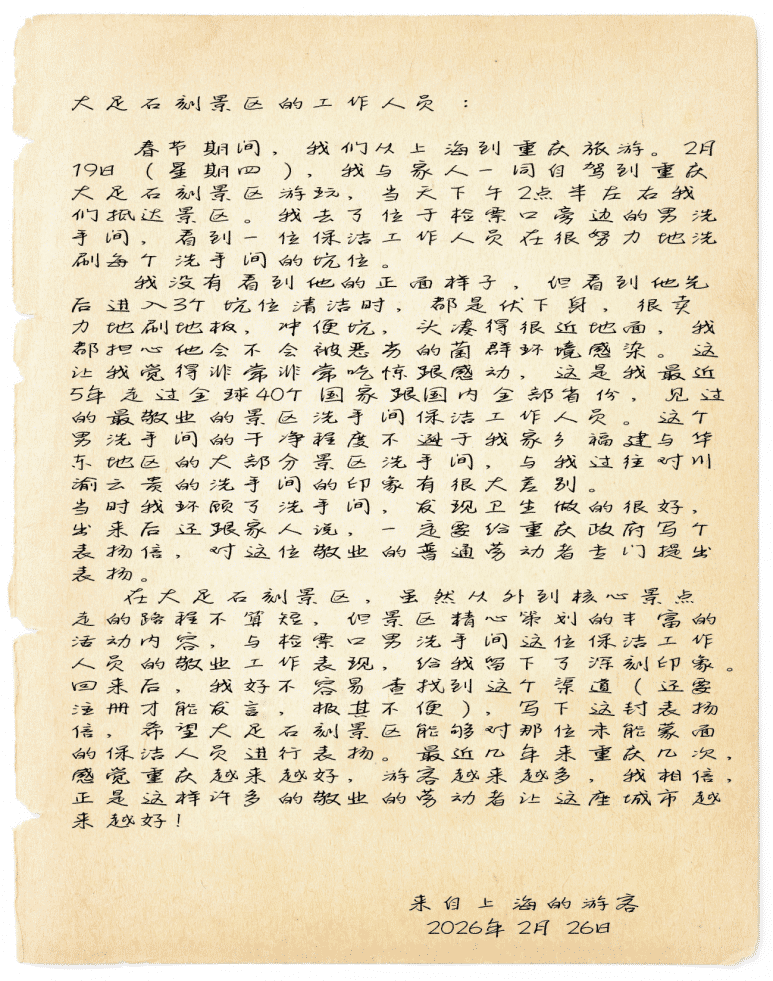 大足石刻景区的工作人员：
春节期间，我们从上海到重庆旅游。2月
19日（星期四），我与家人一同自驾到重庆
大足石刻景区游玩，当天下午2点半左右我
们抵达景区。我去了位于检票口旁边的男洗
手间，看到一位保洁工作人员在很努力地洗
刷每个洗手间的坑位。
我没有看到他的正面样子，但看到他先
后进入3个坑位清洁时，都是伏下身，很卖
力地刷地板，冲便坑，头凑得很近地面，我
都担心他会不会被恶劣的菌群环境感染。这
让我觉得非常非常吃惊跟感动，这是我最近
5年走过全球40个国家跟国内全部省份，见过
的最敬业的景区洗手间保洁工作人员。这个
男洗手间的干净程度不逊于我家乡福建与华
东地区的大部分景区洗手间，与我过往对川
渝云贵的洗手间的印象有很大差别。
当时我环顾了洗手间，发现卫生做的很好，
出来后还跟家人说，一定要给重庆政府写个
表扬信，对这位敬业的普通劳动者专门提出
表扬。
在大足石刻景区，虽然从外到核心景点
走的路程不算短，但景区精心策划的丰富的
活动内容，与检票口男洗手间这位保洁工作
人员的敬业工作表现，给我留下了深刻印象。
回来后，我好不容易查找到这个渠道（还要
注册才能发言，极其不便），写下这封表扬
信，希望大足石刻景区能够对那位未能蒙面
的保洁人员进行表扬。最近几年来重庆几次，
感觉重庆越来越好，游客越来越多，我相信，
正是这样许多的敬业的劳动者让这座城市越
来越好！
来自上海的游客
2026年2月26日